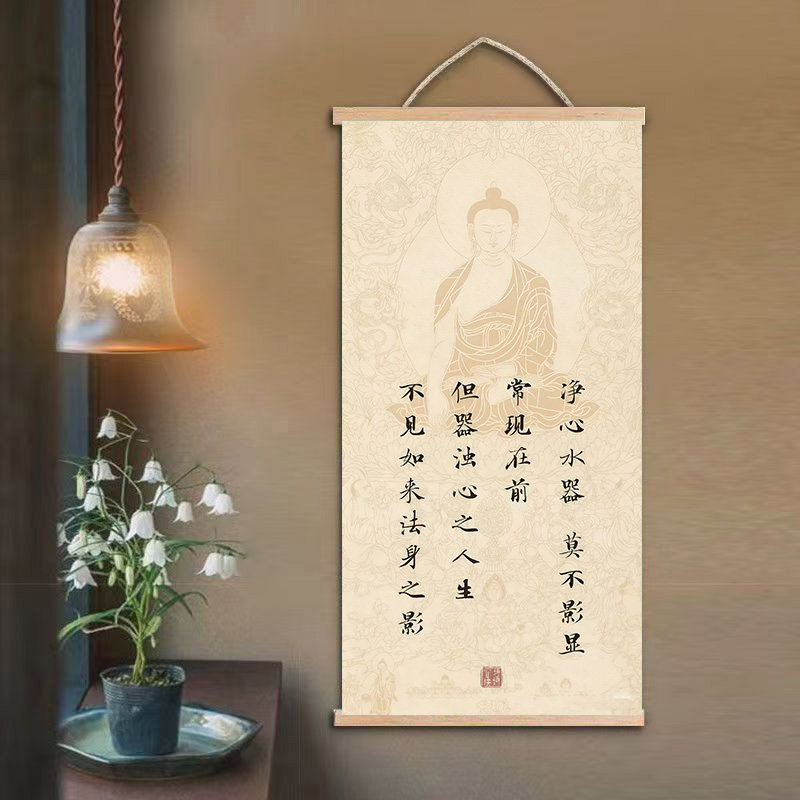 净心水器 莫不影显
常现在前
但器浊心之人生
不见如来法身之影